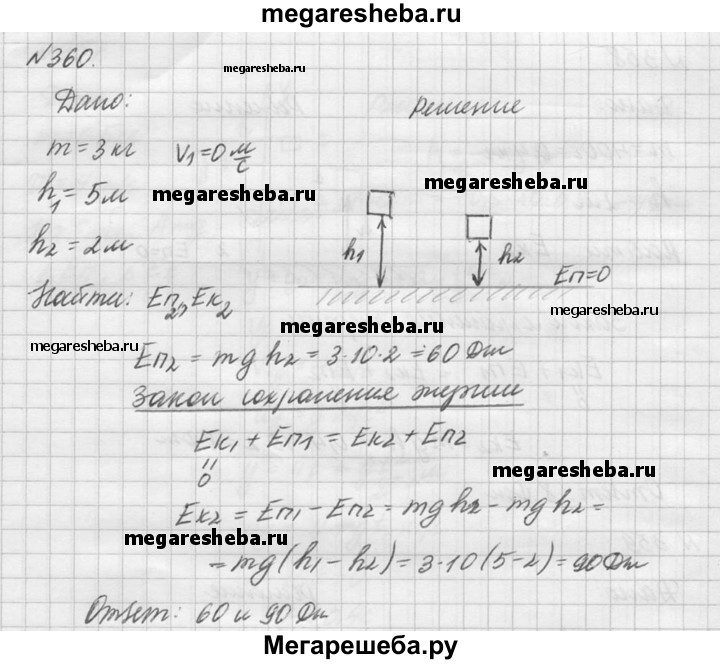 megaresheba.ru
№360.
megaresheba.ru
Дано:
Решение
m = 3 кг V₁ = 0 м/с
megaresheba.ru
megaresheba.ru
h₁ = 5 м
h₂ = 2 м
h₁
h₂
Eп=0
Найти: Eп₂, Eк₂
megaresheba.ru
megaresheba.ru
Eп₂ = mgh₂ = 3·10·2 = 60 Дж
Закон сохранения энергии
Eк₁ + Eп₁ = Eк₂ + Eп₂
"
0
megaresheba.ru
Eк₂ = Eп₁ - Eп₂ = mgh₂ - mgh₂ =
megaresheba.ru
= mg(h₁ - h₂) = 3·10(5-2) = 90 Дж
Ответ: 60 и 90 Дж
Мегарешеба.ру